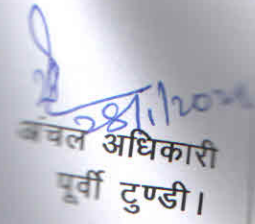 28/1/20
अंचल अधिकारी
पूर्वी टुण्डी।